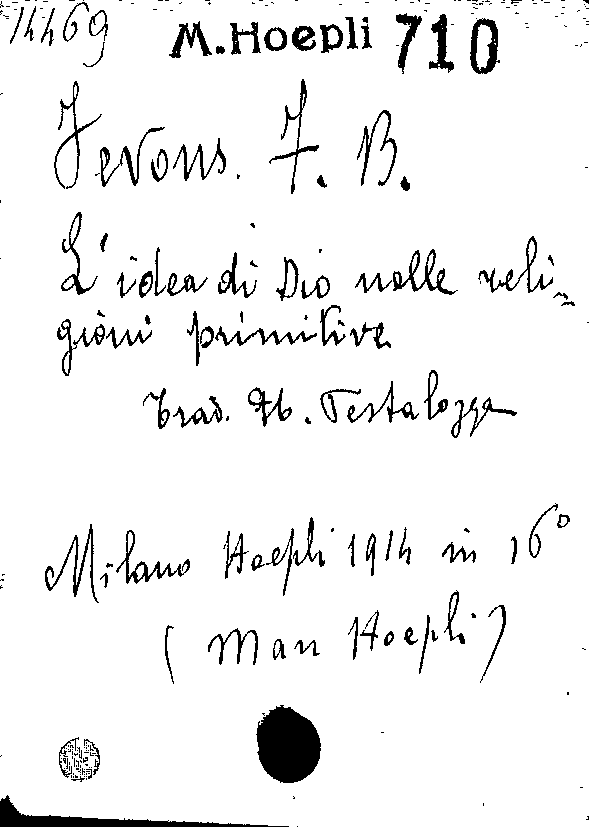 14469 M. Hoepli 710
Jevons. F. B.
L'idea di Dio nelle reli-
gioni primitive
Trad. Pestalozza
Milano Hoepli 1914 in 16°
(Man Hoepli)